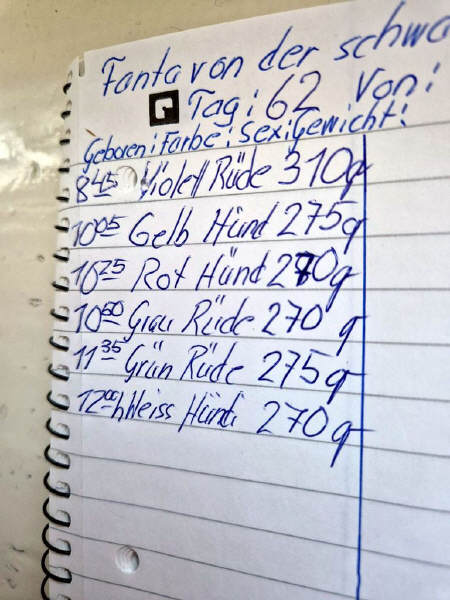 Fanta von der schwa
Tag: 62 Von:
Geboren: Farbe: Sex: Gewicht:
8 45 Violett Rüde 310g
10 05 Gelb Hünd 275g
10 25 Rot Hünd 270g
10 50 Grau Rüde 270 g
11 35 Grün Rüde 275g
12 00 h Weiss Hünd 270g